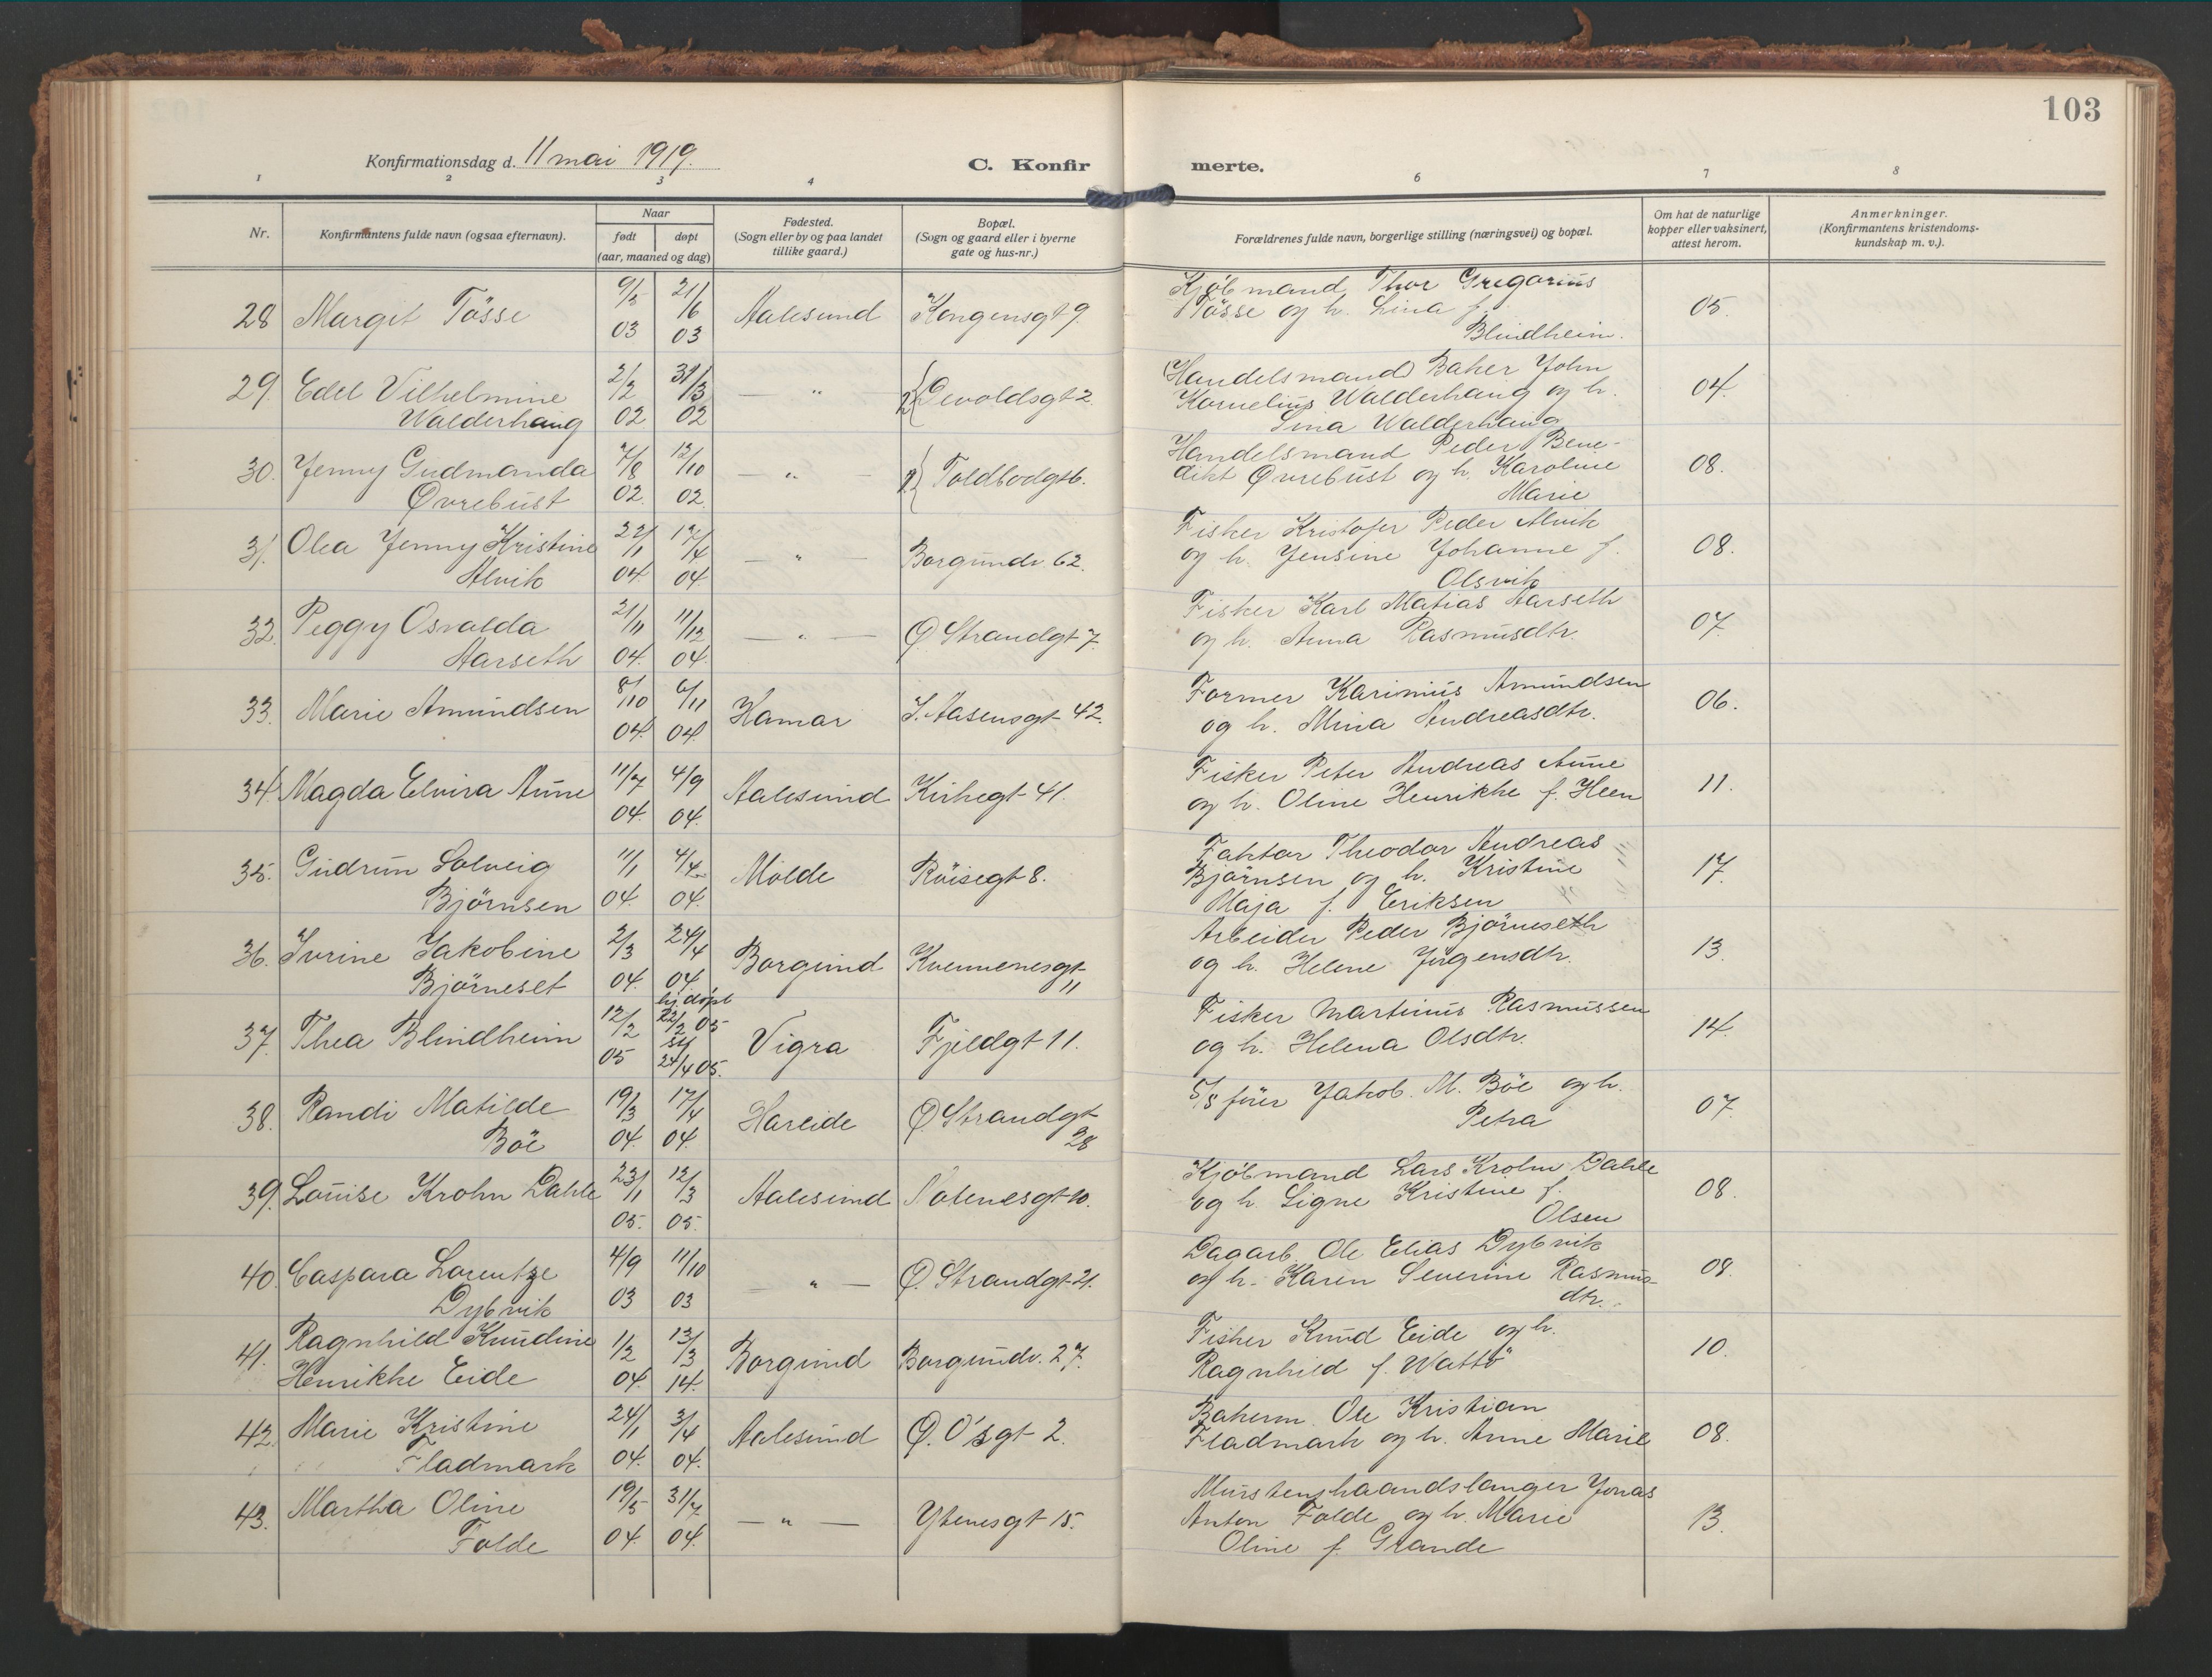 103
Konfirmationsdag d. 11 mai 1919.
C. Konfir merte.
1 2 3 4 6 7 8
Nr.
Konfirmantens fulde navn (ogsaa efternavn).
Naar
født døpt
(aar, maaned og dag)
Fødested.
(Sogn eller by og paa landet
tillike gaard.)
Bopæl.
(Sogn og gaard eller i byerne
gate og hus-nr.)
Forældrenes fulde navn, borgerlige stilling (næringsvei) og bopæl.
Om hat de naturlige
kopper eller vaksinert,
attest herom.
Anmerkninger.
(Konfirmantens kristendoms-
kundskap m. v.).
28 Margit Tösse 9/5 03 21/6 03 Aalesund Kongensgt 9. Kjöbmand Thor Gregorius
Tösse og h. Lina f.
Blindheim. 05.
29. Edel Vilhelmine
Walderhaug 2/2 02 31/3 02 — " — Devoldsgt 2. Handelsmand Baker John
Kornelius Walderhaug og h.
Lina Walderhaug 04.
30. Jenny Gudmanda
Øvrebust 7/8 02. 12/10 02. — " — Toldbodgt 6. Handelsmand Peder Bene-
dikt Øvrebust og h. Karoline
Marie 08.
31. Olea Jenny Kristine
Alvik 22/1 04. 17/4 04. — " — Borgundv. 62. Fisker Kristofer Peder Alvik
og h. Jensine Johanne f.
Olsvik 08.
32. Peggy Osvalda
Aarseth 21/11 04. 11/12 04. — " — Ø Strandgt 7. Fisker Karl Matias Aarseth
og h. Anna Rasmusdtr. 07.
33. Marie Amundsen 8/10 04. 6/11 04. Hamar I. Aasensgt 42. Former Karinius Amundsen
og h. Mina Andreasdtr. 06.
34. Magda Elvira Aune 11/7 04. 4/9 04. Aalesund Kirkegt 41. Fisker Peter Andreas Aune
og h. Oline Henrikke f. Heen 11.
35. Gudrun Solveig
Björnsen 11/1 04. 4/4 04. Molde Röisegt 8. Faktor Theodor Andreas
Björnsen og h. Kristine
Maja f. Eriksen 17.
36. Ivrine Jakobine
Björneset 2/3 04. 24/4 04. Borgund Kvennenesgt
11 Arbeider Peder Björneseth
og h. Helene Jörgensdtr. 13.
37. Thea Blindheim 12/2 05 hj.döpt
22/2 05
24/4 05. Vigra Fjeldgt 11. Fisker Martinus Rasmussen
og h. Helena Olsdtr. 14.
38. Randi Matilde
Böe 19/3 04. 17/4 04. Hareide Ø Strandgt
28 S/S förer Jakob. M. Böe og h.
Petra 07.
39. Louise Krohn Dahle 23/1 05. 12/3 05. Aalesund Notenesgt 10. Kjöbmand Lars Krohn Dahle
og h. Signe Kristine f.
Olsen 08.
40. Caspara Lorentze
Dybvik 4/9 03 11/10 03 — " — Ø. Strandgt 21. Dagarb. Ole Elias Dybvik
og h. Karen Severine Rasmus-
dtr. 08.
41. Ragnhild Knudine
Henrikke Eide 1/2 04. 13/3 14. Borgund Borgundv. 27. Fisker Knud Eide og h.
Ragnhild f. Wattö 10.
42. Marie Kristine
Fladmark 24/1 04. 3/4 04. Aalesund Ø. O'sgt 2. Bakerm. Ole Kristian
Fladmark og h. Anne Marie 08.
43. Martha Oline
Folde 19/5 04. 31/7 04. — " — Ystenesgt 15. Murstenshaandslanger Jonas
Anton Folde og h. Marie
Oline f. Grande 13.